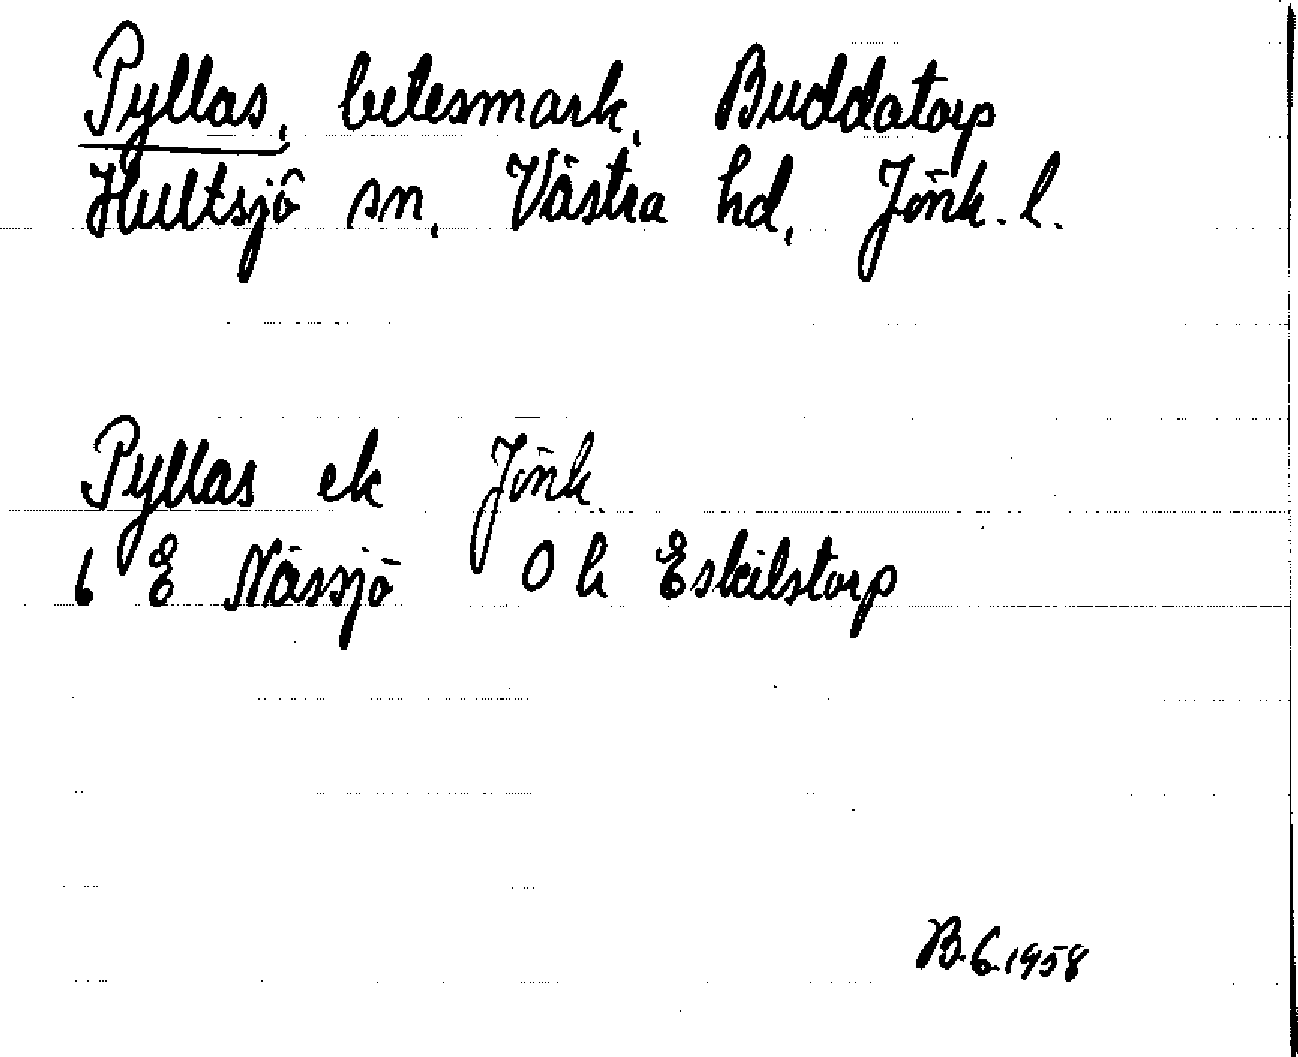 Pyllas, betesmark, Buddatorp
Hultsjö sn, Västra hd, Jönk. l.
Pyllas ek Jönk.
6 E Nässjö 0 h Eskilstorp
B.G. 1958